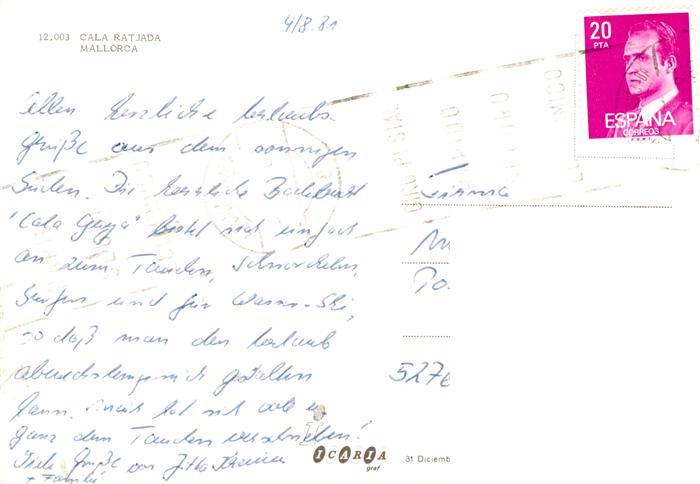 12.003 CALA RATJADA
MALLORCA
4/8.81
20
PTA
ESPAÑA
CORREOS
Allen herzliche Urlaubs-
Grüße aus dem sonnigen
Süden. Die herrliche Badebucht
"Cala Guya" bietet sich einfach
an zum Tauchen, Schnorcheln,
Surfen und für Wasser-Ski,
so daß man den Urlaub
abwechslungsreich gestalten
kann. hat sich
ganz dem Tauchen verschrieben!
Viele Grüße von Jutta
+ Familie
Firma
527
ICARIA
graf
31 Diciemb